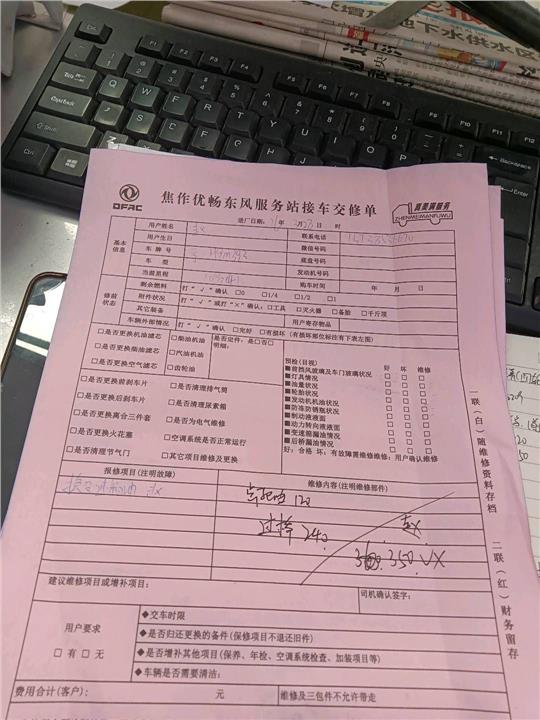 增水 地下水供水区
DFAC
焦作优畅东风服务站接车交修单
真美满服务
ZHENMEIMANFUWU
送厂日期: 年 月 23 日 时
基本信息
用户姓名 赵 联系电话
用户生日 微信号码
车牌号 底盘号码
车型 发动机号码
当前里程 购车时间 年 月 日
修前状态
剩余燃料 打“√”确认 □0 □1/4 □1/2 □1
附件状况 打“√”或打“×”确认:□工具 □灭火器 □备胎 □千斤顶
其它装备 用户寄存物品
车辆外部情况 打“√”确认 □完好 □有损坏(有损坏部位标注有下表左图)
□是否更换机油滤芯 □柴油机油 是否定件:是□否□
□是否更换柴油滤芯 □汽油机油 明细:
□是否更换空气滤芯 □齿轮油
□是否更换前刹车片 □是否清理排气筒
□是否更换后刹车片 □是否清理尿素箱
□是否更换离合三件套 □是否为电气维修
□是否更换火花塞 □空调系统是否正常运行
□是否清理节气门 □其它项目维修及更换
预检(目视) 好 坏 维修
■前挡风玻璃及车门玻璃状况 □ □ □
■灯具情况 □ □ □
■油量状况 □ □ □
■轮胎状况 □ □ □
■发动机机油状况 □ □ □
■防冻防锈瓶状况 □ □ □
■制动液液面 □ □ □
■动力转向液液面 □ □ □
■变速箱漏油情况 □ □ □
■后桥漏油情况 □ □ □
好:合格 坏:有故障需维修维修:用户确认维修
报修项目(注明故障) 维修内容(注明维修部件)
赵 120
过桥 240 赵
350
建议维修项目或增补项目: 司机确认签字:
用户要求
□有 □无
◆交车时限
◆是否归还更换的备件(保修项目不退还旧件)
◆是否增补其他项目(保养、年检、空调系统检查、加装项目等)
◆车辆是否需要清洁:
费用合计(客户): 元 维修及三包件不允许带走
一联(白)随维修资料存档
二联(红)财务留存